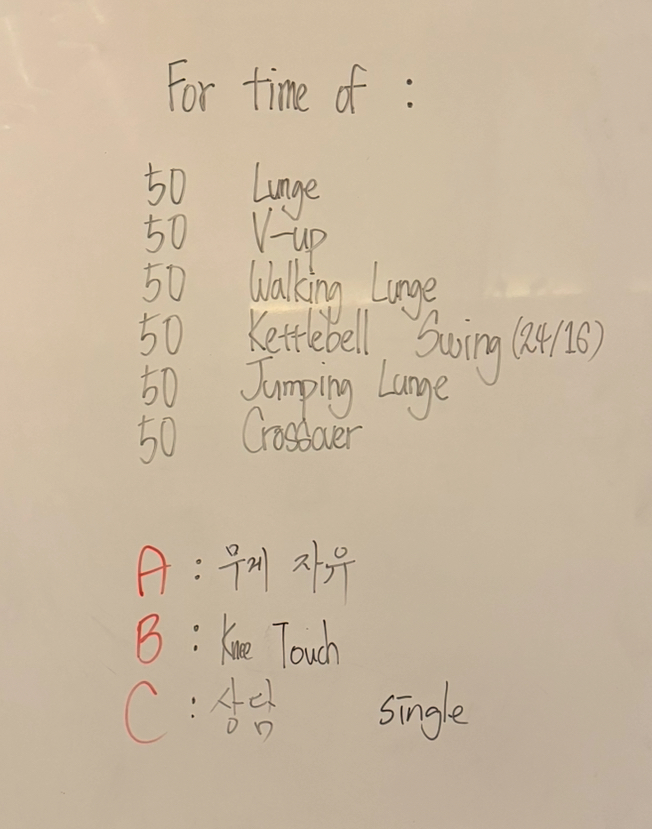 For time of :
50 Lunge
50 V-up
50 Walking Lunge
50 Kettlebell Swing (24/16)
50 Jumping Lunge
50 Crossover
A : 무게 자유
B : Knee Touch
C : 상담 single